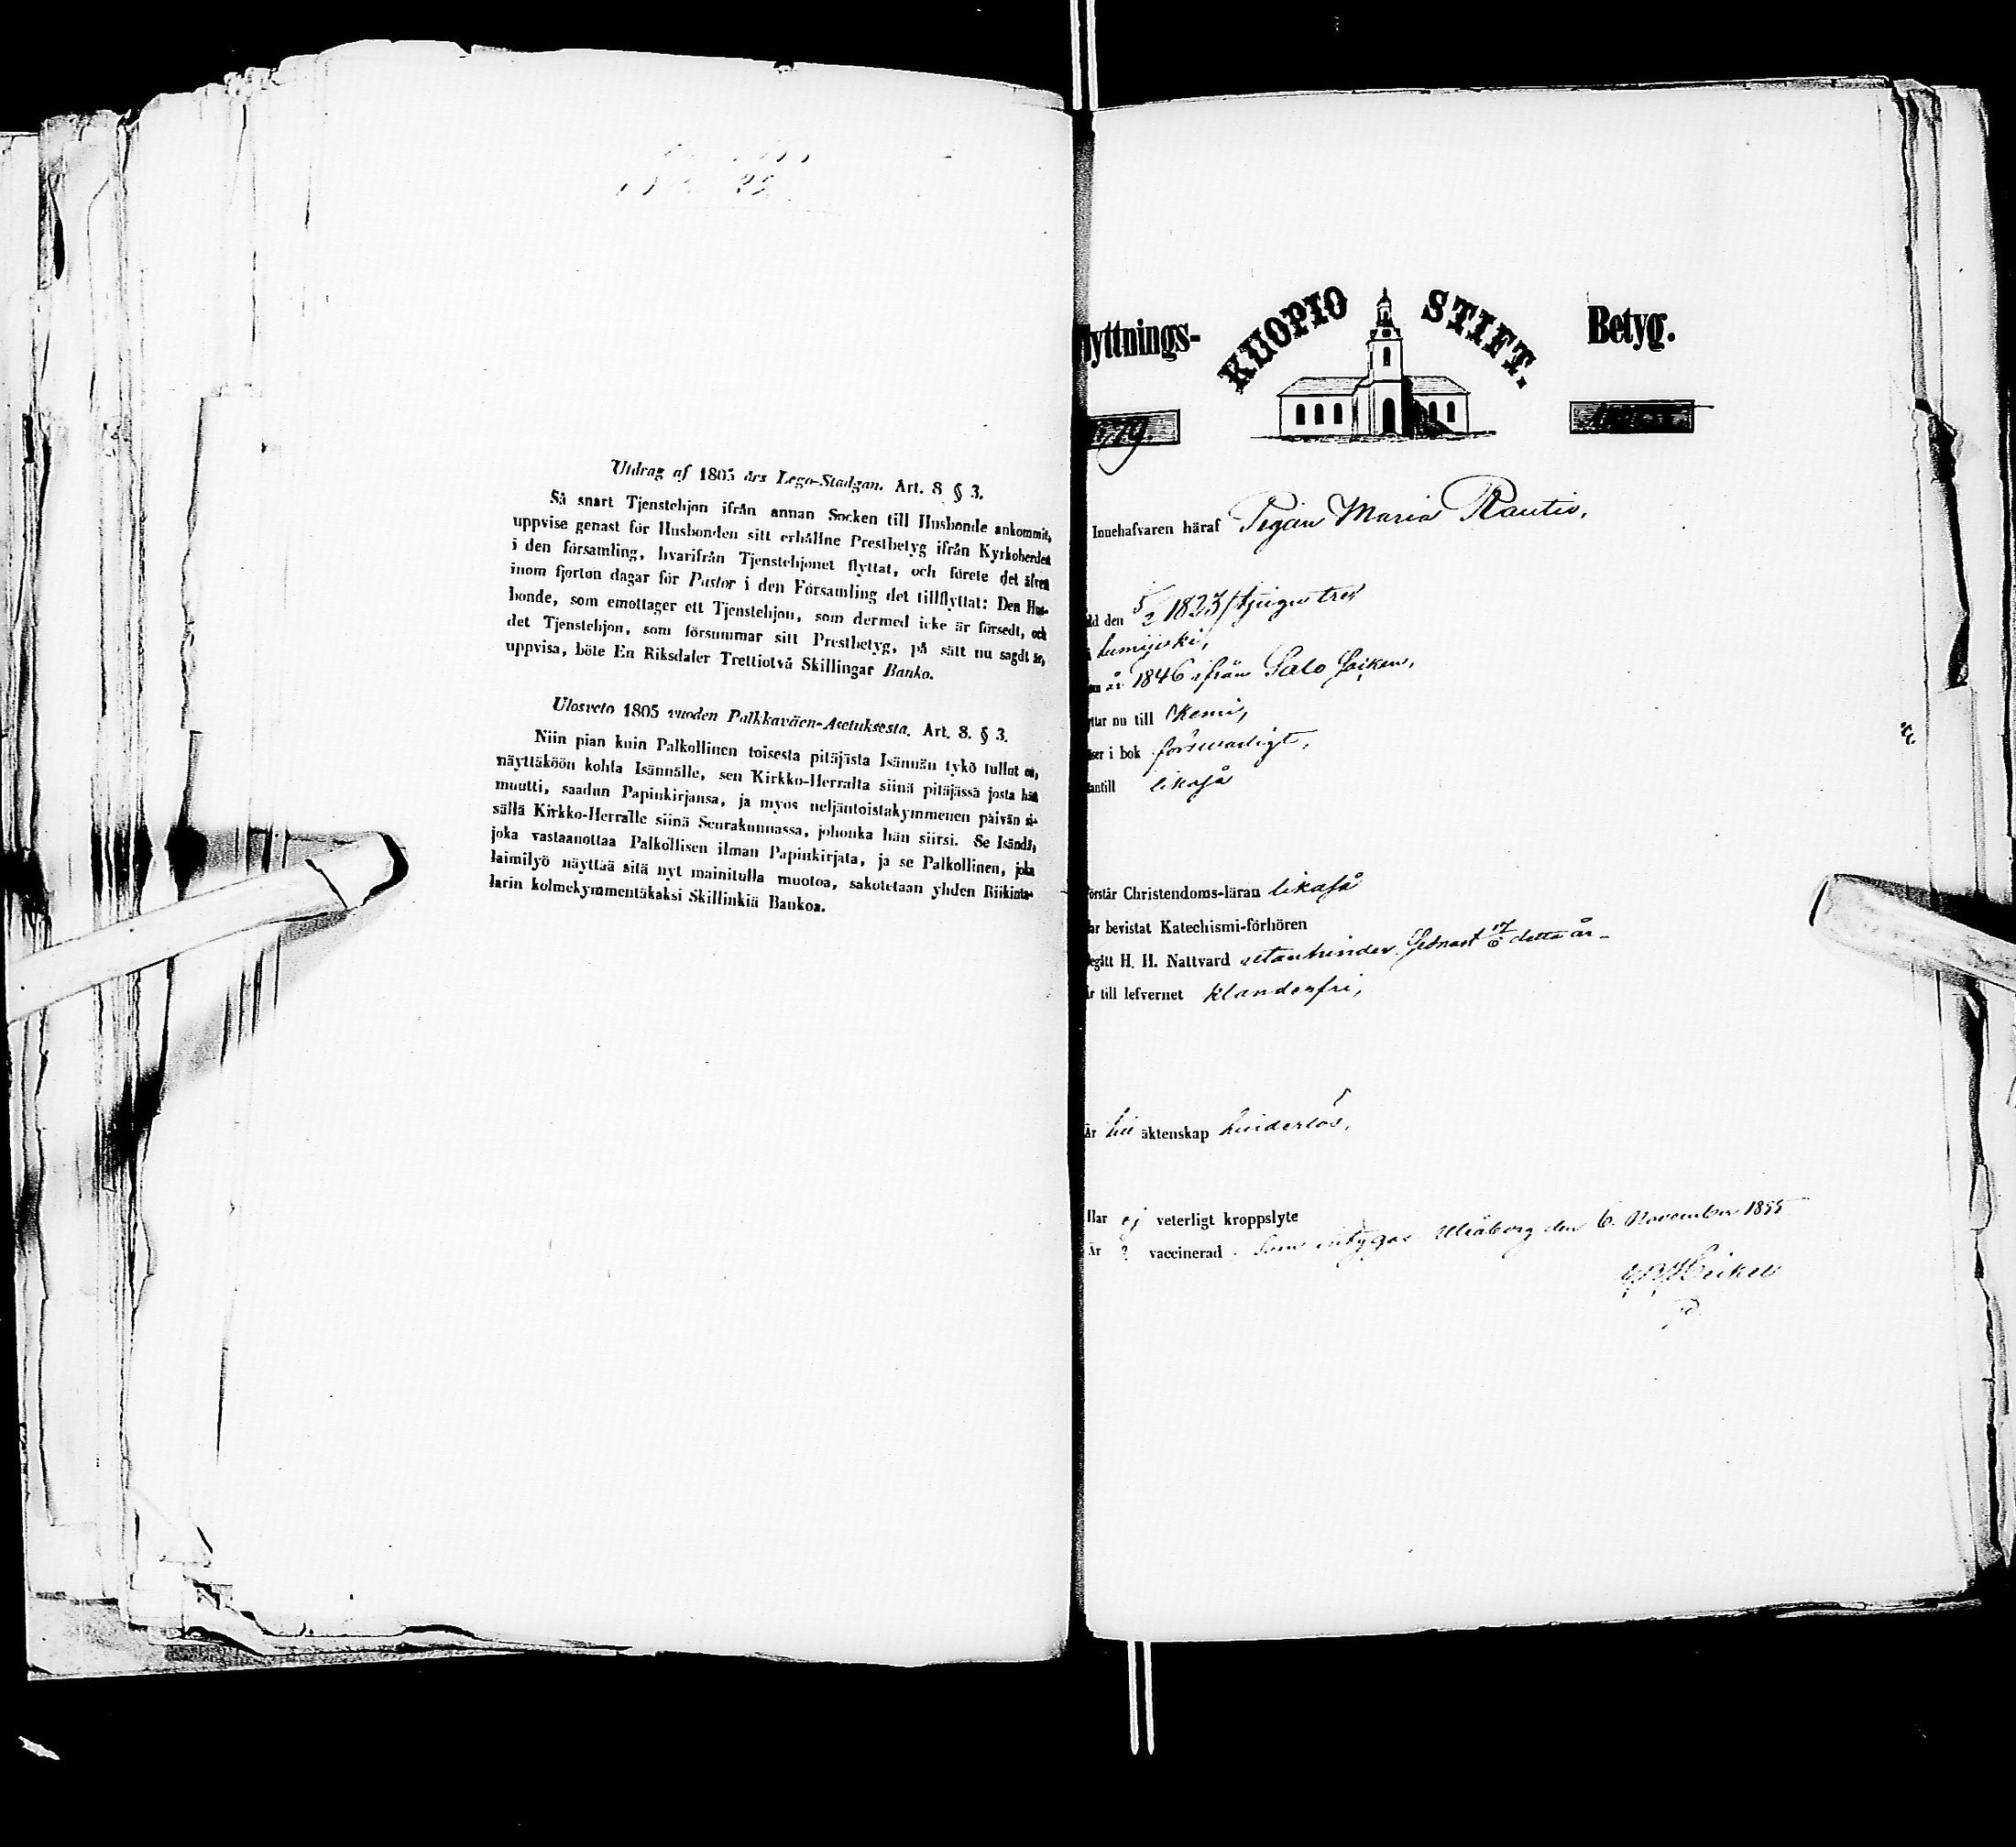 Utdrag af 1805 års Lego-Stadgan. Art. 8 § 3.
Så snart Tjenstehjon ifrån annan Socken till Husbonde ankommit,
uppvise genast för Husbonden sitt erhållne Prestbetyg ifrån Kyrkoherden
i den församling, hvarifrån Tjenstehjonet flyttat, och förete det äfven
inom fjorton dagar för Pastor i den Församling det tillflyttat: Den Hus-
bonde, som emottager ett Tjenstehjon, som dermed icke är försedt, och
det Tjenstehjon, som försummar sitt Prestbetyg, på sätt nu sagdt är,
uppvisa, böte En Riksdaler Trettiotvå Skillingar Banko.
Ulosveto 1805 vuoden Palkkaväen-Asetuksesta. Art. 8. § 3.
Niin pian kuin Palkollinen toisesta pitäjästa Isännän tykö tullut on,
näyttäköön kohta Isännälle, sen Kirkko-Herralta siinä pitäjässä josta hän
muutti, saadun Papinkirjansa, ja myos neljäntoistakymmenen päivän si-
sällä Kirkko-Herralle siinä Seurakunnassa, johonka hän siirsi. Se Isändä,
joka vastaanottaa Palkollisen ilman Papinkirjata, ja se Palkollinen, joka
laimilyö näyttää sitä nyt mainitulla muotoa, sakotetaan yhden Riikinta-
larin kolmekymmentäkaksi Skillinkiä Bankoa.
lyttnings- KUOPIO STIFT. Betyg.
Innehafvaren häraf Pigan Maria Rautio,
dd den 5/2 1823/tjugutre/
Lumijoki,
år 1846 ifrån Salo Socken,
ttar nu till Kemi,
ser i bok försvarligt,
antill likaså
örstår Christendoms-läran likaså
ar bevistat Katechismi-förhören
egått H. H. Nattvard utan hinder. Sednast 17/6 detta år
r till lefvernet klanderfri,
Är till äktenskap hinderlös,
Har ej veterligt kroppslyte
Är ? vaccinerad. Som intygas Uleåborg den 6. November 1855
Heikel